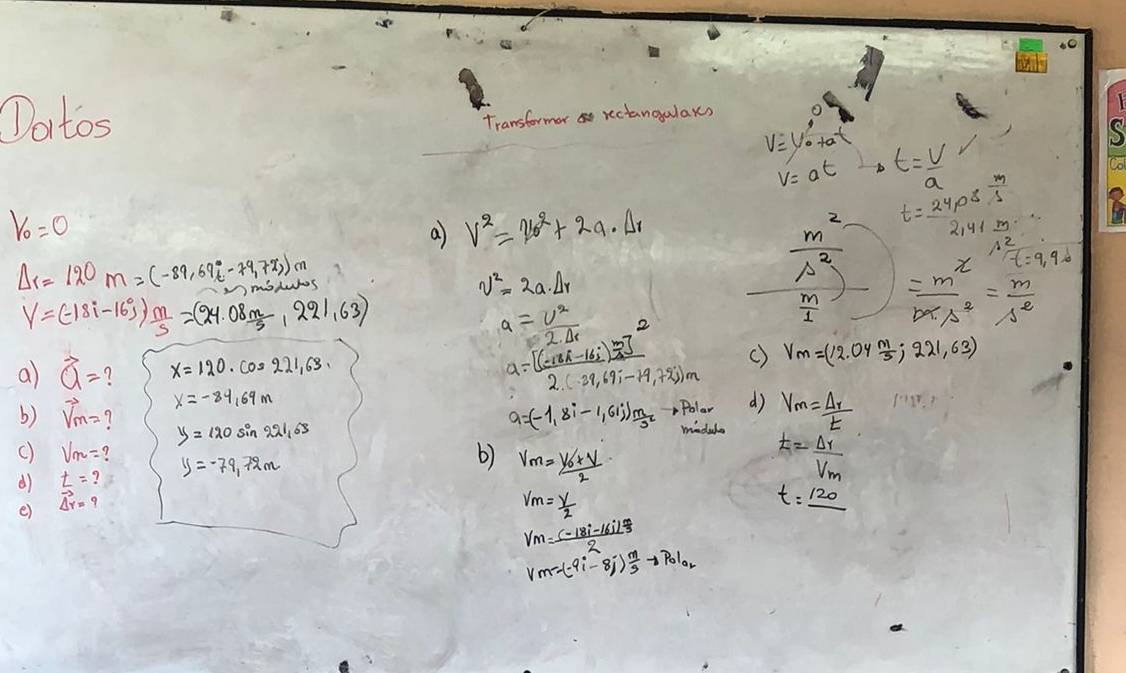 Datos
V₀ = 0
Δr = 120 m = (-89,69i - 79,72j) m
→ módulos
V = (-18i - 16j) m/s = (24.08 m/s, 221,63)
a) a⃗ = ?
b) V⃗m = ?
c) Vm = ?
d) t = ?
e) Δ⃗r = ?
x = 120 . cos 221,63.
x = -89,69 m
y = 120 sin 221,63
y = -79,72 m
Transformar a rectangulares
a) V² = V₀² + 2a . Δr
V² = 2a . Δr
a = V² / 2.Δr
a = [(-18i - 16j) m/s]² / 2.(-89,69i - 79,72j) m
a = (-1,8i - 1,61j) m/s² → Polar
módulo
b) Vm = V₀ + V / 2
Vm = V / 2
Vm = (-18i - 16j) m/s / 2
Vm = (-9i - 8j) m/s → Polar
0
V = V₀ + at
V = at → t = V / a ✓
t = 24,08 m/s / 2,41 m/s²
t = 9,9 s
m² / s² / m / 1 = m² / m . s² = m / s²
c) Vm = (12.04 m/s ; 221,63)
d) Vm = Δr / t
t = Δr / Vm
t = 120